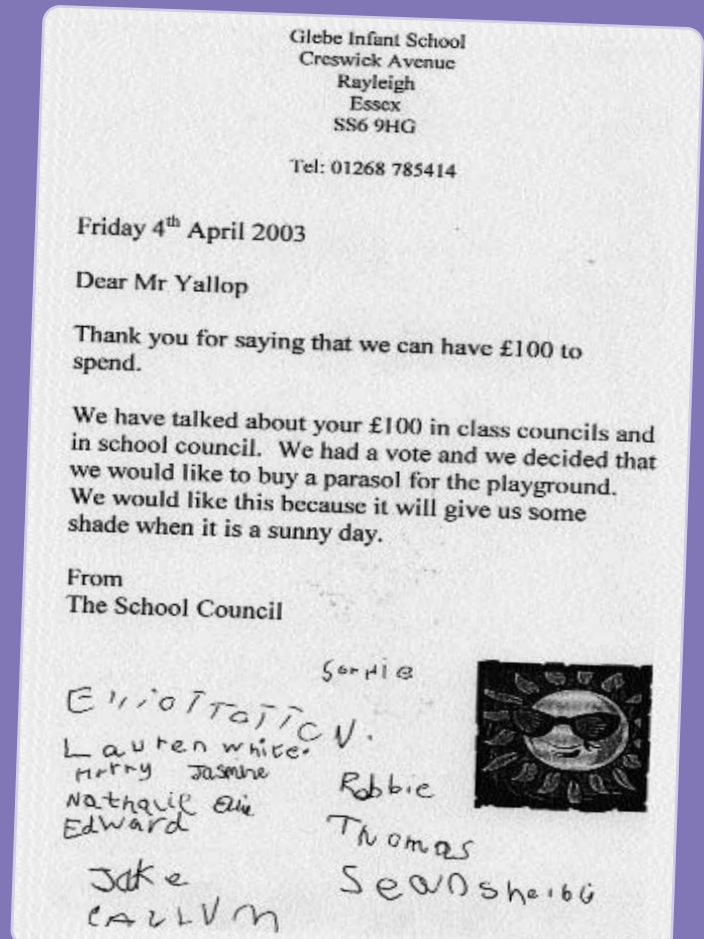 Glebe Infant School
Creswick Avenue
Rayleigh
Essex
SS6 9HG
Tel: 01268 785414
Friday 4th April 2003
Dear Mr Yallop
Thank you for saying that we can have £100 to
spend.
We have talked about your £100 in class councils and
in school council. We had a vote and we decided that
we would like to buy a parasol for the playground.
We would like this because it will give us some
shade when it is a sunny day.
From
The School Council
Lauren white.
Jasmine
Edward
Jake
CALLUM
Robbie
Thomas
Sean